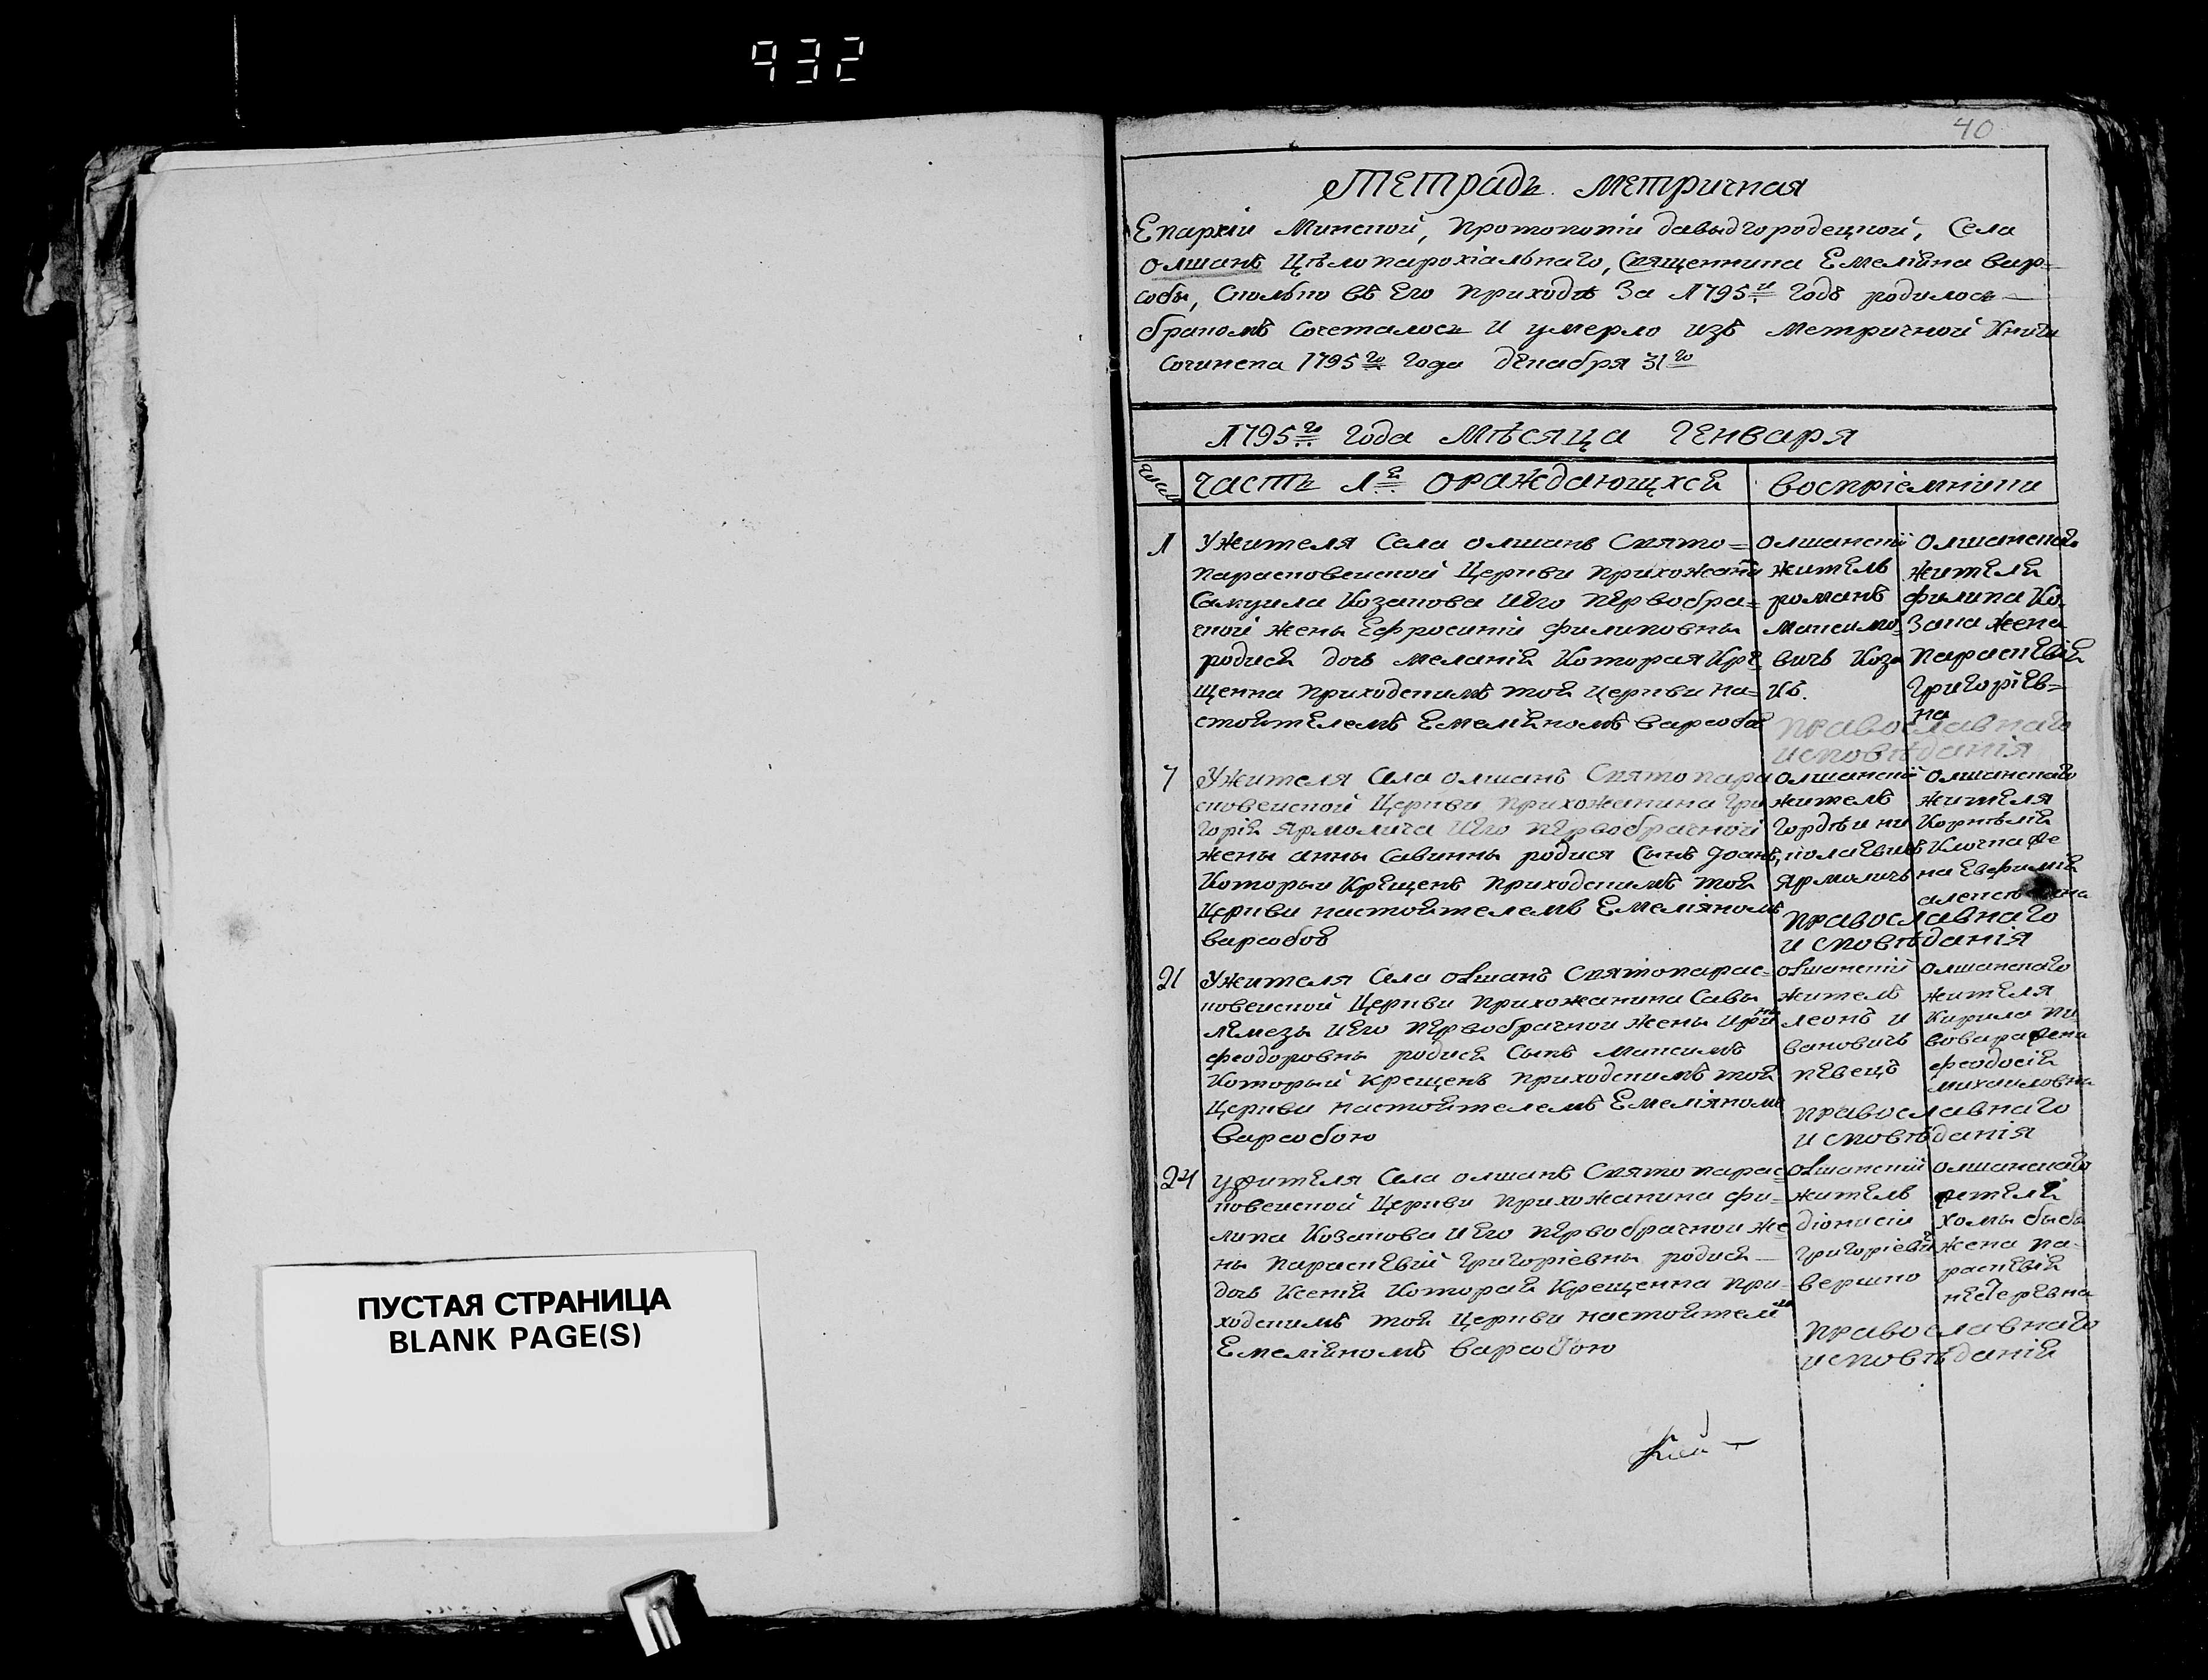 932
40
Тетрадь Метричная
Епархiи Минской, Протопопiи давыдгородецкой, Села
Олшанъ Цѣлопарохiальнаго, Священника Емелiяна Вар=
собы, Сколько въ Его Приходѣ За 1795й Годъ родилось
бракомъ Сочеталось и умерло изъ Метричной Книги
Сочинена 1795го Года декабря 31го
1795го Года Мѣсяца Генваря
Часть 1я ораждающихся воспрiемники
1
Ужителя Села олшанъ Свято=
Парасковеиской Церкви Прихожани
Самуила Козакова Иего Первобра=
чной жены Ефросинiи Филиповны
родися дочь Меланiя Которая Кре
щенна Приходскимъ той Церкви На=
стоятелемъ Емелiяномъ Варсобою
олшанскiй
житель
романъ
Максимо=
вичъ Коза
къ.
Олшанскаго
жителя
филипа Ко=
зака жена
Параскевiя
Григорiев=
на
Православнаго
исповѣданiя
7
Ужителя Села олшанъ Святопара
сковеиской Церкви Прихожанина Гри
горiя Ярмолича Иего Первобрачной
жены анны Савинны родися Сынъ Iоанъ,
Которыи Крещенъ Приходскимъ той
Церкви настоятелемъ Емелiяномъ
Варсобою
олшанскiй
житель
Гордѣи ни
колаевичъ
Ярмоличъ
олшанскаго
жителя
Корнѣлiя
на Евфимiя
Православнаго
исповѣданiя
21
Ужителя Села олшанъ Святопарас=
ковеиской Церкви Прихожанина Савы
Лемезы Иего Первобрачнои жены Ирины
феодоровны родися Сынъ Максимъ
Который Крещенъ Приходскимъ той
Церкви настоятелемъ Емелiяномъ
Варсобою
олшанскiй
житель
леонъ и
вановичъ
певецъ
олшанскаго
жителя
Кирила пи
вовара жена
феодосiя
михаиловна
Православнаго
исповѣданiя
24
ужителя Села олшанъ Святопарас
ковеиской Церкви Прихожанина фи=
липа Козакова Иего Первобрачнои же
ны Параскевiй Григорiевны родися
дочь Ксенiя Которая Крещенна При=
ходскимъ той Церкви настоятелемъ
Емелiяномъ Варсобою
олшанскiй
житель
дiонисiи
Григорiевичъ
вершко
олшанскаго
жителя
хомы быбы
жена па=
раскевiя
нестеревна
Православнаго
исповѣданiя
ПУСТАЯ СТРАНИЦА
BLANK PAGE(S)